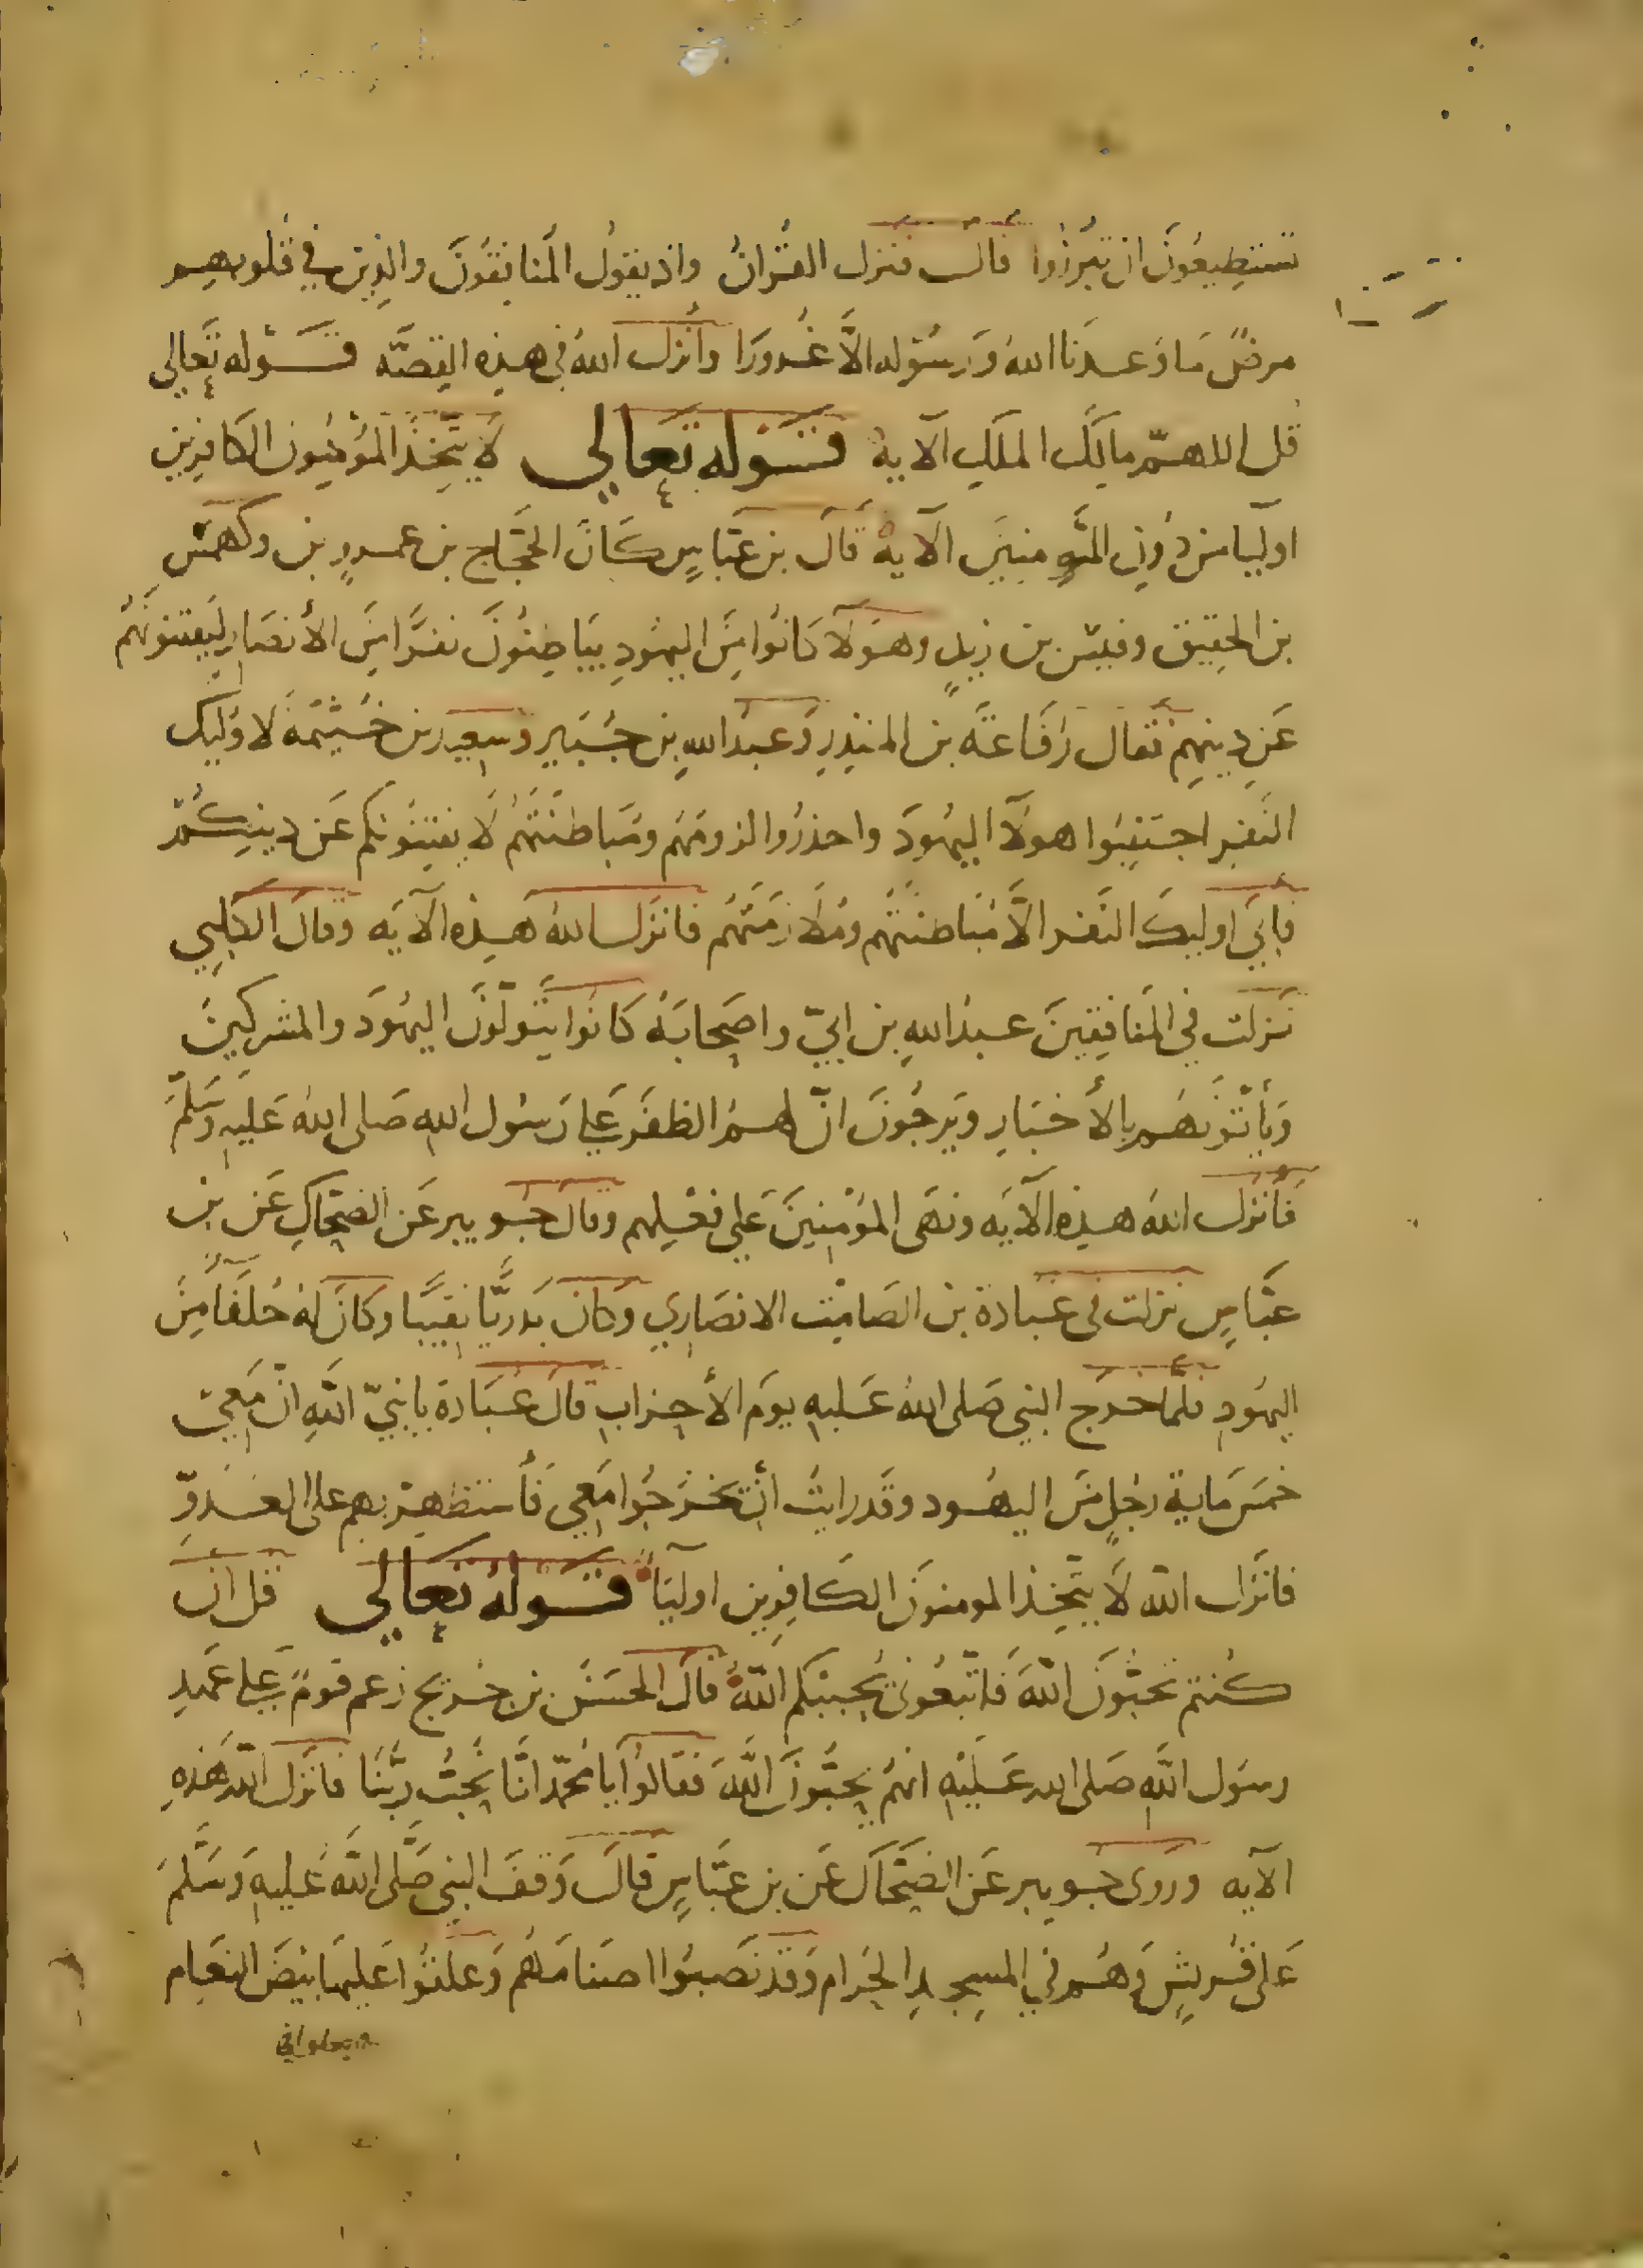 تستطيعون ان تبرزوا قال فنزل القران واذ يقول المنافقون والذين في قلوبهم
مرض ما وعدنا الله ورسوله الا غرورا وأنزل الله في هذه القصه قوله تعالى
قل اللهم مالك الملك الآيه قوله تعالى لا يتخذ المؤمنون الكافرين
اوليا من دون المؤمنين الآيه قال بن عباس كان الحجاج بن عمرو بن وكهمس
بن الحقيق وقيس بن زيد وهولا كانوا من اليهود يباطنون نفرا من الأنصار ليفتنونهم
عن دينهم فقال رفاعة بن المنذر وعبد الله بن جبير وسعيد بن خيثمة لاوليك
النفير اجتنبوا هولآ اليهود واحذروا لزومهم ومباطنتهم لا يفتنونكم عن دينكم
فابي اوليك النفر الا مباطنتهم وملازمتهم فانزل الله هذه الآيه وقال الكلبي
نزلت في المنافقين عبد الله بن ابي واصحابه كانوا يتولون اليهود والمشركين
ويأتونهم بالأخبار ويرجون ان لهم الظفر علي رسول الله صلى الله عليه وسلم
فأنزل الله هذه الآيه ونهى المؤمنين علي فعلهم وقال جويبر عن الضحاك عن بن
عباس نزلت في عبادة بن الصامت الانصاري وكان بدريا نقيبا وكان له حلفآ من
اليهود فلما خرج النبي صلى الله عليه يوم الأحزاب قال عبادة يا نبي الله ان معي
خمس ماية رجل من اليهود وقد رايت أن يخرجوا معي فأستظهر بهم على العدو
فانزل الله لا يتخذ المومنون الكافرين اوليآ قوله تعالى قل ان
كنتم تحبون الله فاتبعوني يحببكم الله قال الحسن بن جريج زعم قوم علي عهد
رسول الله صلى الله عليه انهم يحبون الله فقالوا يا محمد انا نحب ربنا فانزل الله هذه
الآيه وروى جويبر عن الضحاك عن بن عباس قال وقف النبي صلى الله عليه وسلم
على قريش وهم في المسجد الحرام وقد نصبوا اصنامهم وعلقوا عليها بيض النعام
وجعلوا في